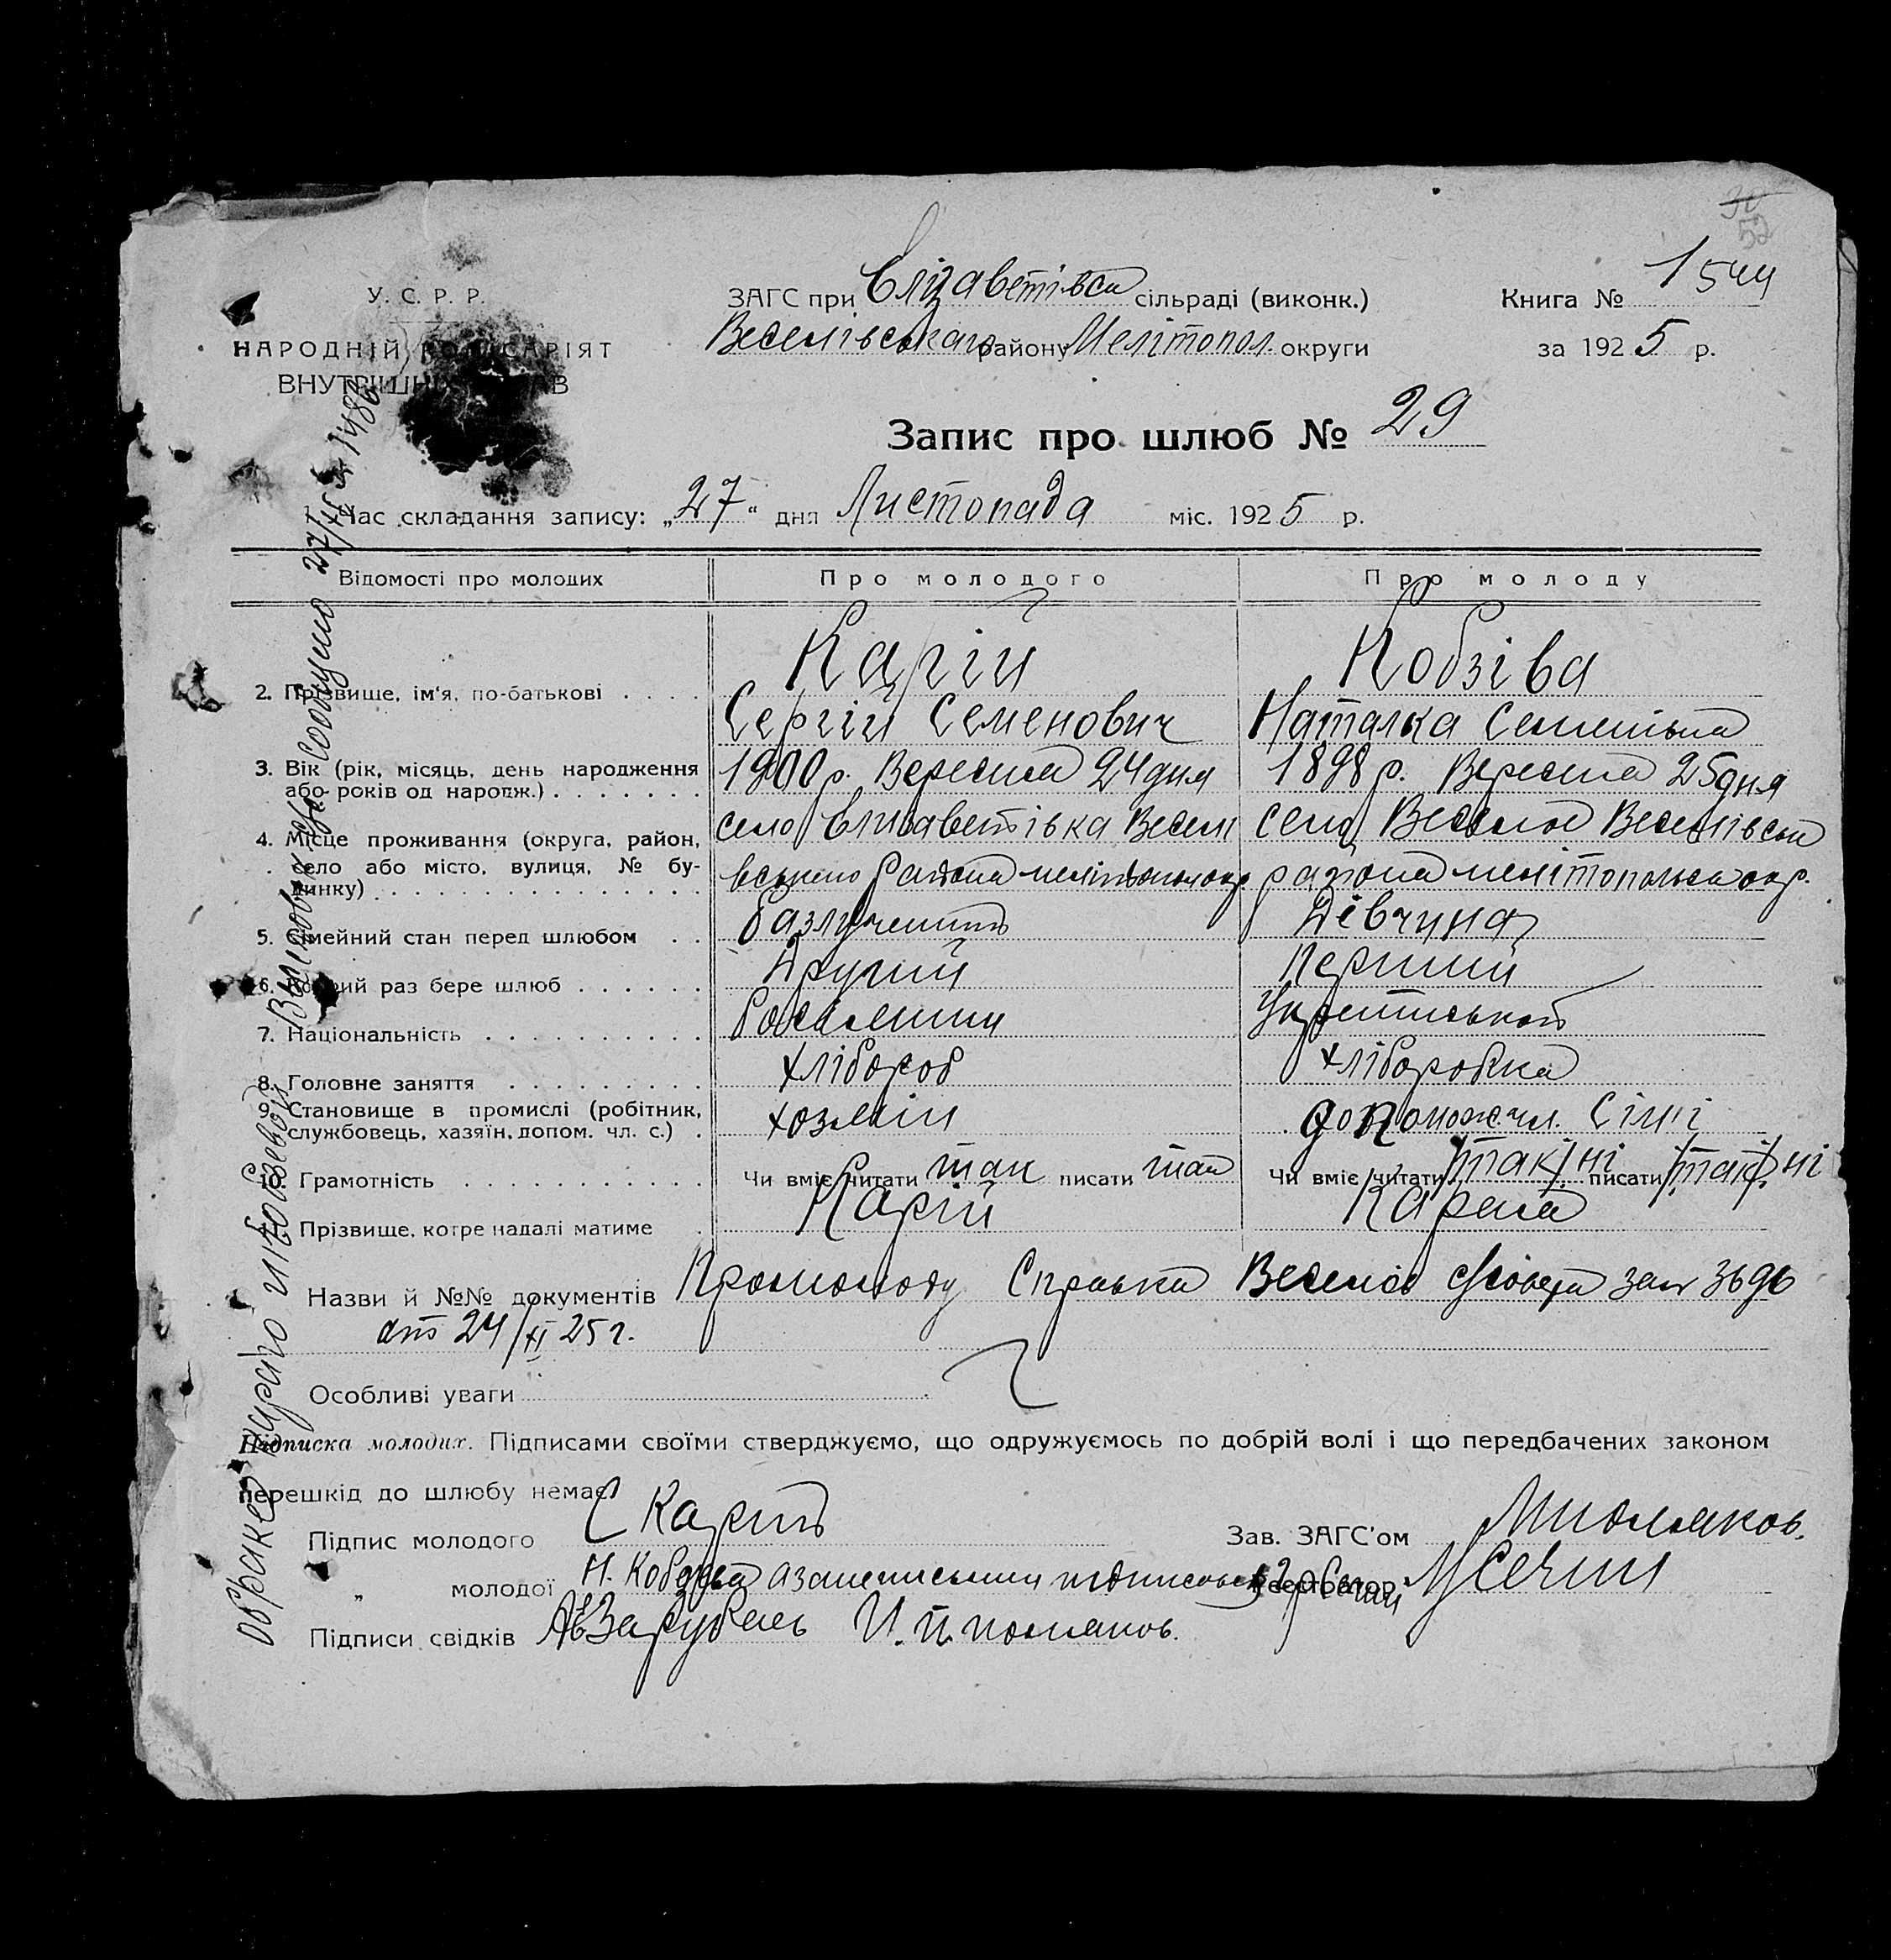 52
У. С. Р. Р.
НАРОДНІЙ КОМІСАРІЯТ
ВНУТРІШНІХ СПРАВ
ЗАГС при Єлізаветівск сільраді (виконк.)
Веселівського району Мелітопол. округи
Книга № 1544
за 1925 р.
Запис про шлюб № 29
Час складання запису: „27“ дня Листопада міс. 1925 р.
Відомості про молодих Про молодого Про молоду
Карій Кобзіва
2. Прізвище, ім'я, по-батькові . . . .
Сергій Семенович Наталка
3. Вік (рік, місяць, день народження 1900 р. Вересня 24 дня 1898 р. Вересня 25 дня
або років од народж.) . . . . . . .
село Єлизаветівка Веселі село Веселое Веселівськ
4. Місце проживання (округа, район,
село або місто, вулиця, № бу- вського района мелітопольск окр. района мелітопольск окр.
динку) . . . . . . . . . . . . . .
5. Сімейний стан перед шлюбом . . Дівчина
6. Котрий раз бере шлюб . . . . . . Другий Перший
7. Національність . . . . . . . . . .
8. Головне заняття . . . . . . . . . хлібороб хліборобка
9. Становище в промислі (робітник, хозяін допомож чл. сімі
службовець, хазяїн, допом. чл. с.) .
10. Грамотність . . . . . . . . . . . Чи вміє читати так писати так Чи вміє читати /так/ ні писати /так/ ні
Прізвище, котре надалі матиме . Карій Карія
Назви й №№ документів Справка Веселів зан 3696
ат 24/XI 25 г.
Особливі уваги
Підписка молодих. Підписами своїми стверджуємо, що одружуємось по добрій волі і що передбачених законом
перешкід до шлюбу немає.
Підпис молодого С Карій Зав. ЗАГС'ом
„ молодої Н. Кобзева а за неписьмену Реєстратор
Підписи свідків
о браке Кираго и Кобзевой